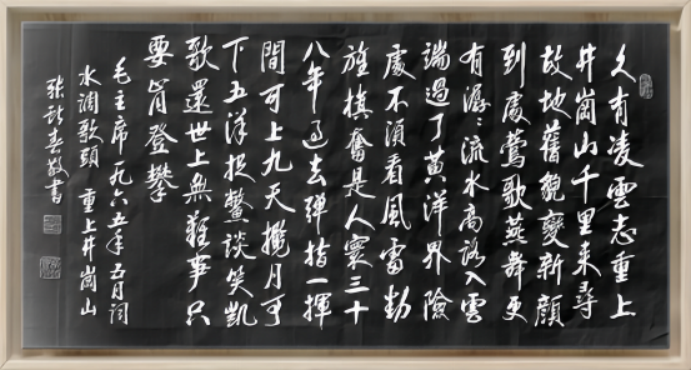 久有凌雲志重上
井崗山千里來尋
故地舊貌變新顏
到處鶯歌燕舞更
有潺〻流水高路入雲
端過了黃洋界險
處不須看風雷動
旌旗奮是人寰三十
八年過去彈指一揮
間可上九天攬月可
下五洋捉鱉談笑凱
歌還世上無難事只
要肯登攀
毛主席一九六五年五月詞
水調歌頭 重上井崗山
春敬書